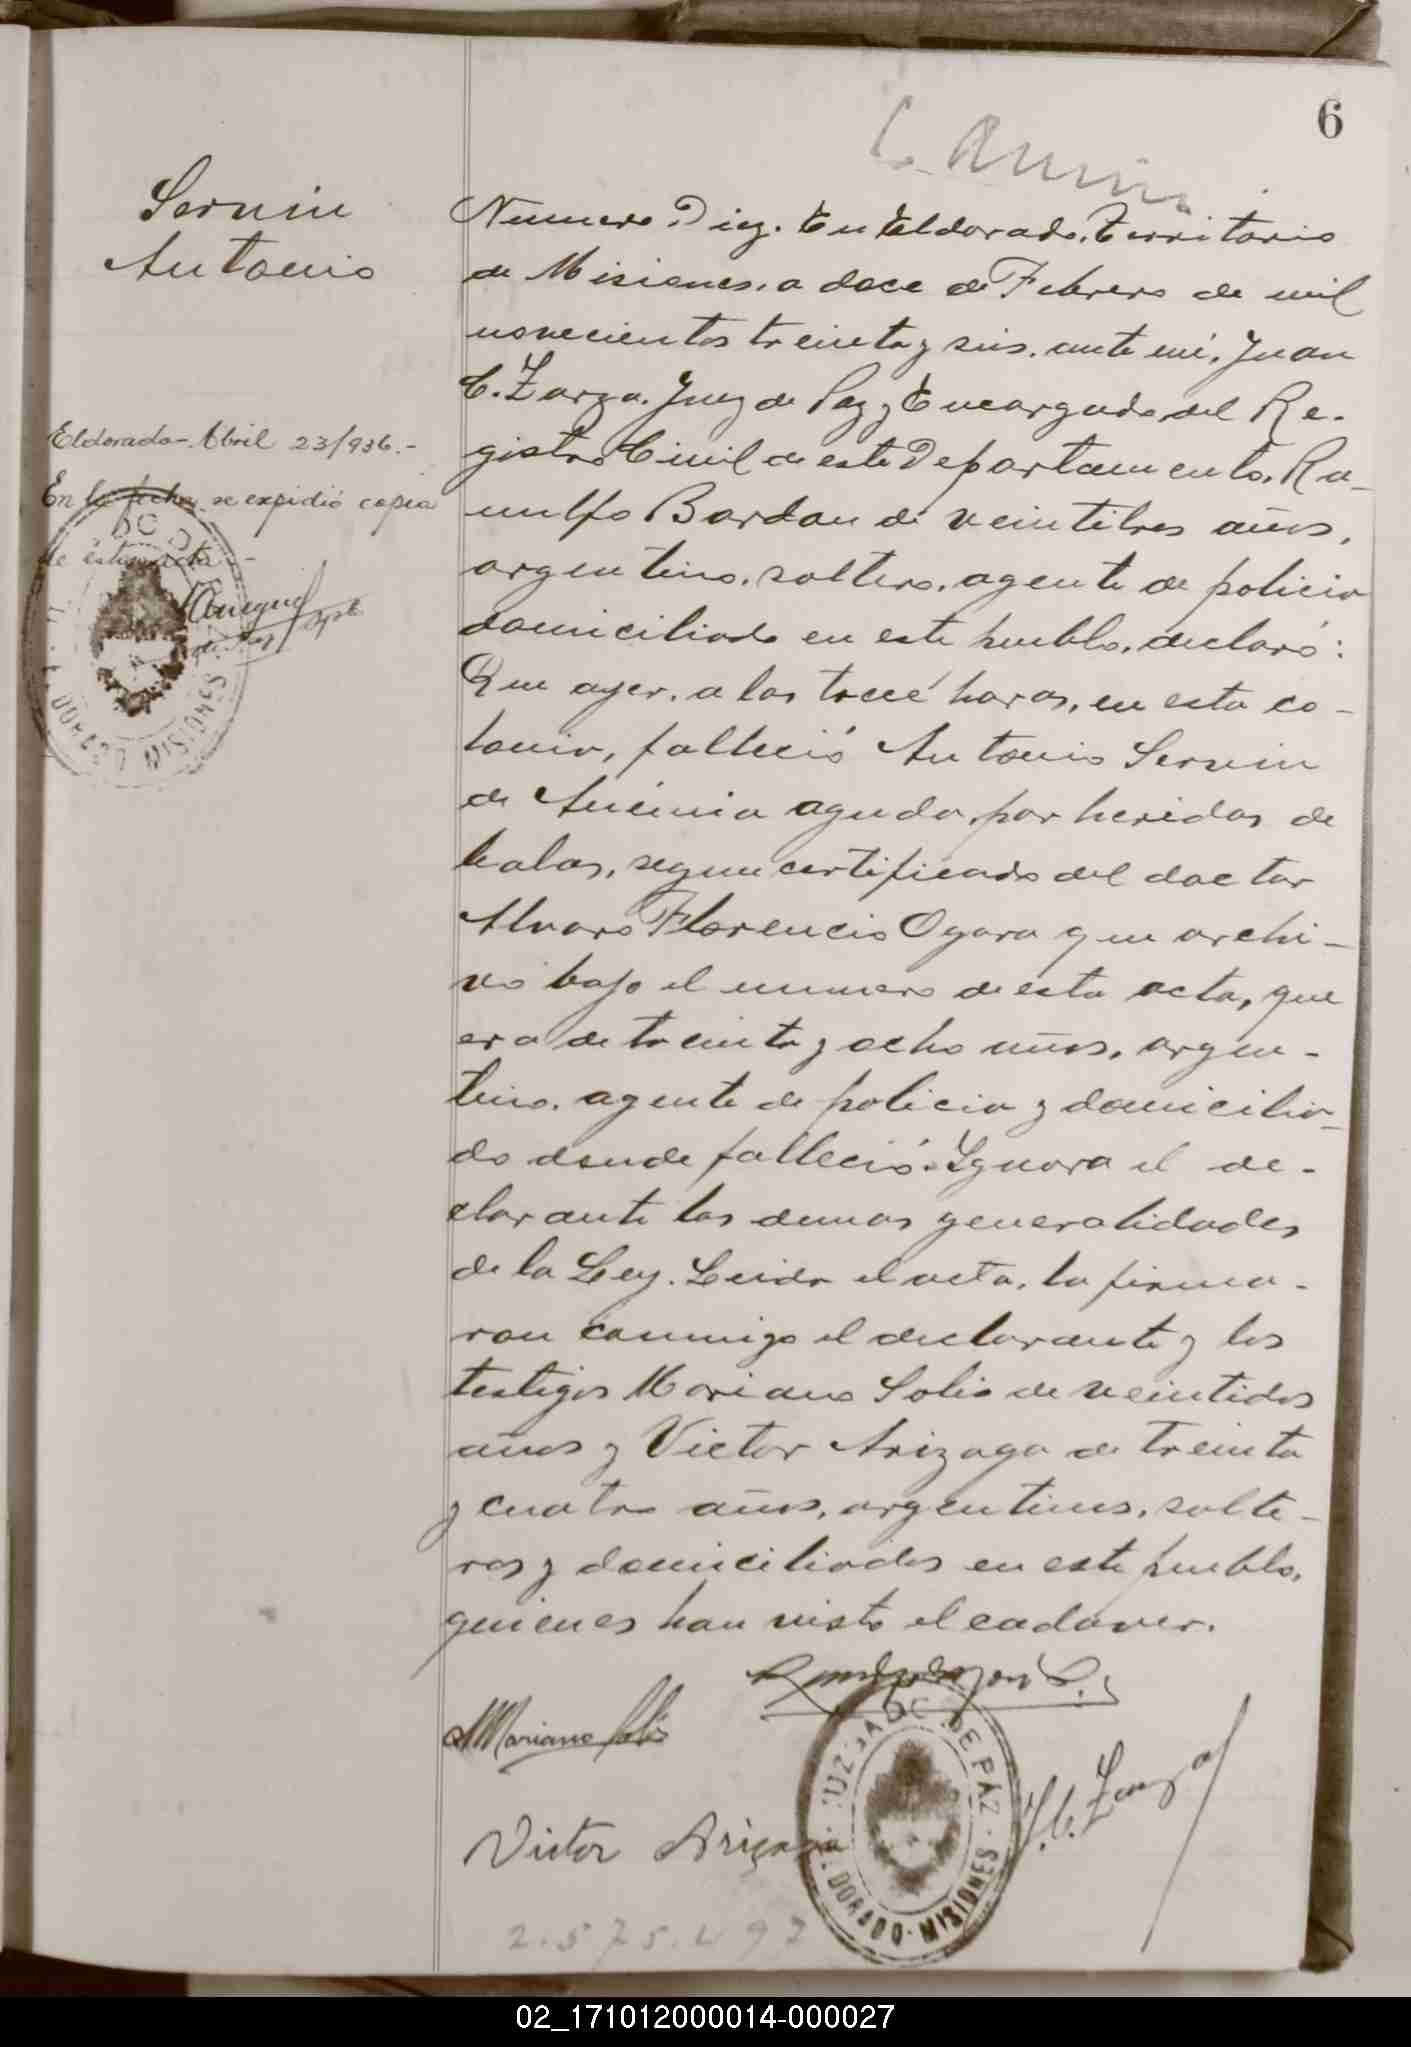 6
Servin
Antonio
Numero Diez. En Eldorado, Territorio
de Misiones, a doce de Febrero de mil
novecientos treinta y seis, ante mí, Juan
C. Zarza, Juez de Paz y Encargado del Re-
gistro Civil de este Departamento, Ra-
nulfo Bardan de veintitres años,
argentino, soltero, agente de policia
domiciliado en este pueblo, declaró:
Que ayer, a las trece horas, en esta co-
lonia, falleció Antonio Servin
de Anémia aguda, por heridas de
balas, segun certificado del doctor
Alvaro Florencio Ogara que archi-
vo bajo el numero de esta acta, que
era de treinta y ocho años, argen-
tino, agente de policia y domicilia-
do donde falleció. Ignora el de-
clarante las demas generalidades
de la Ley. Leida el acta, la firma-
ron conmigo el declarante y los
testigos Mariano Solis de veintidos
años y Victor Arizaga de treinta
y cuatro años, argentinos, solte-
ros y domiciliados en este pueblo,
quienes han visto el cadaver.
Eldorado - Abril 23/936.-
En la fecha se expidió copia
de ésta acta.-
DORADO MISIONES
Mariano Solis
Victor Arizaga
J. C. Zarza
JUZGADO DE PAZ
DORADO - MISIONES
2.575.492
02_171012000014-000027